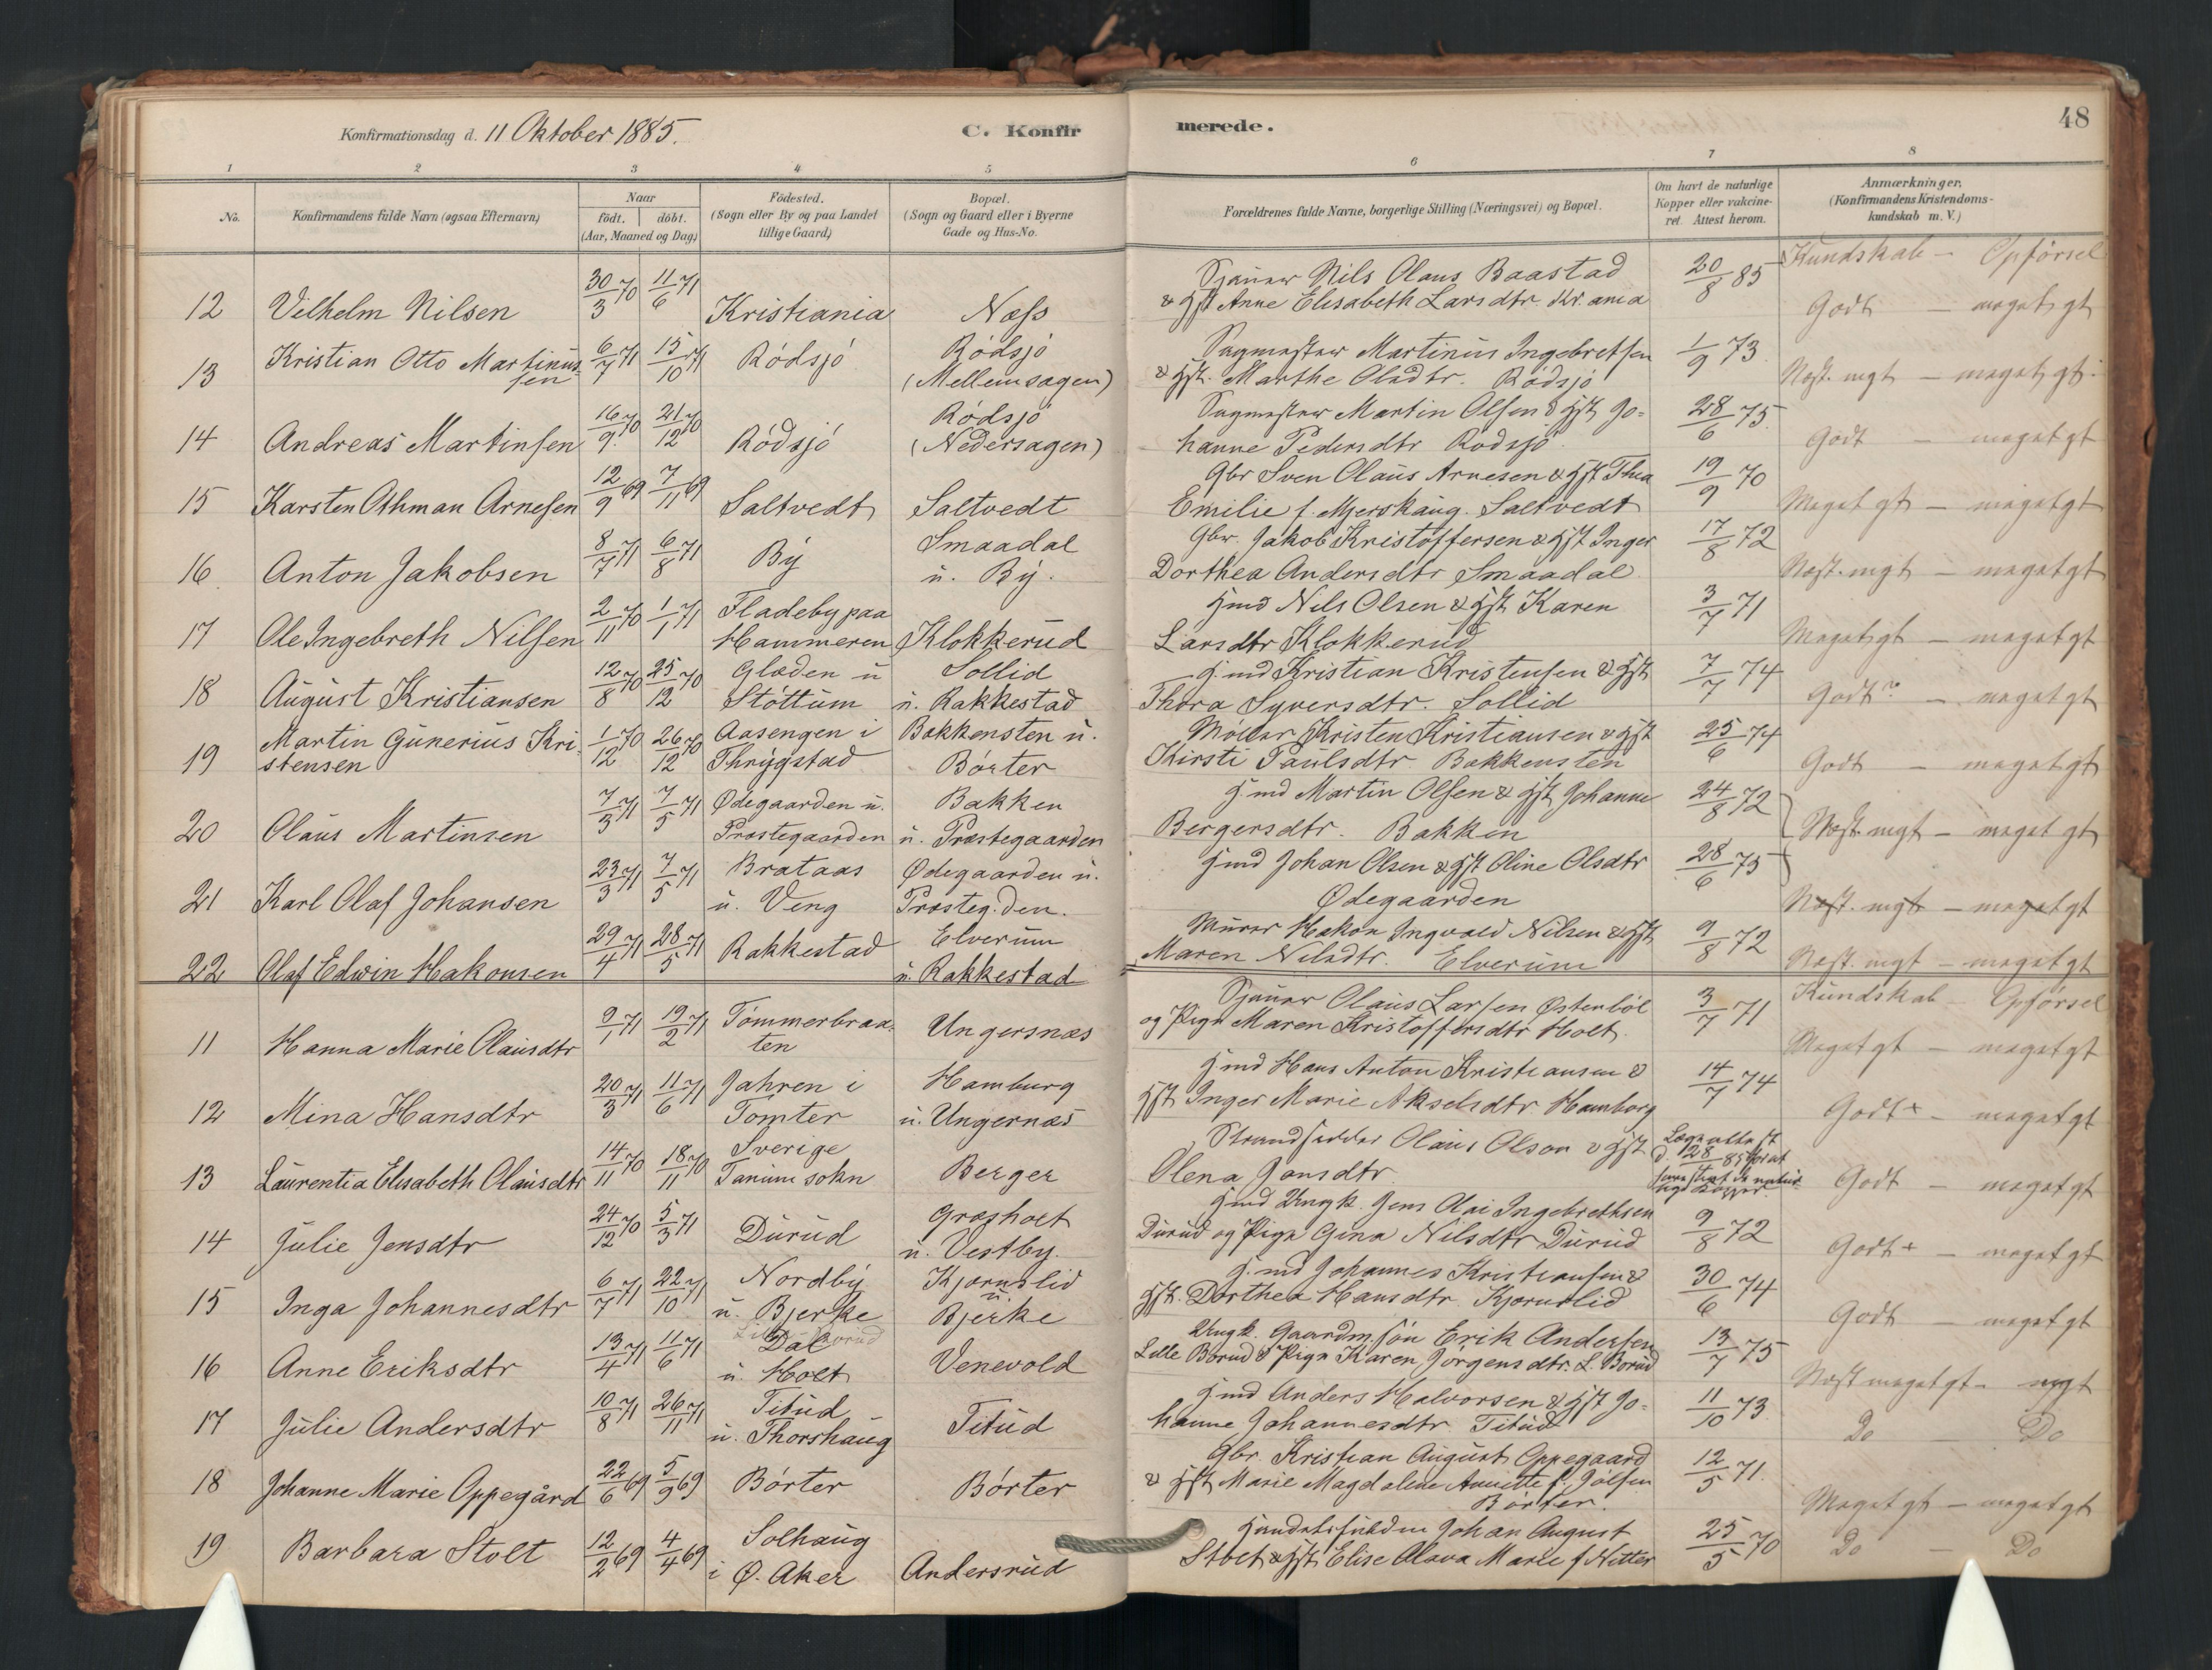 Konfirmationsdag d. 11 Oktober 1885.
C. Konfirmerede.
48
1 2 3 4 5 6 7 8
No.
Konfirmandens fulde Navn (ogsaa Efternavn)
Naar
født. døbt.
(Aar, Maaned og Dag)
Fødested.
(Sogn eller By og paa Landet
tillige Gaard)
Bopæl.
(Sogn og Gaard eller i Byerne
Gade og Hus-No.
Forældrenes fulde Navne, borgerlige Stilling (Næringsvei) og Bopæl.
Om havt de naturlige
Kopper eller vakcine-
ret. Attest herom.
Anmærkninger.
(Konfirmandens Kristendoms-
kundskab m. V.)
Kundskab - Opførsel
12 Vilhelm Nilsen 30/3 70 11/6 71 Kristiania Næss
Nils Olaus Baastad
& Hst Anne Elisabeth Larsdtr Kr.ania
20/8 85 Godt - megetgt
13 Kristian Otto Martinus-
sen 6/7 71 15/10 71 Rödsjö Rödsjö
(Mellemsagen)
Sagmester Martinus Ingebretsen
& Hst. Marthe Olsdtr. Rödsjö
1/9 73 Næst. mgt - megetgt.
14 Andreas Martinsen 16/9 70 21/12 70 Rödsjö Rödsjö
(Nedersagen)
Sagmester Martin Olsen & Hst Jo-
hanne Pedersdtr Rödsjö
28/6 75 Godt - megetgt
15 Karsten Othman Arnesen 12/9 69 7/11 69 Saltvedt Saltvedt
Gbr Sven Olaus Arnesen & Hst Thea
Emilie f. Mjerskaug. Saltvedt
19/9 70 Megetgt - megetgt
16 Anton Jakobsen 8/7 71 6/8 71 By Smaadal
u. By.
Gbr. Jakob Kristoffersen & Hst Inger
Dorthea Andersdtr Smaadal
17/8 72 Næst. mgt - megetgt
17 Ole Ingebreth Nilsen 2/11 70 1/1 71 Fladeby paa
Hammeren Klokkerud
Hmd Nils Olsen & Hst Karen
Larsdtr Klokkerud
3/7 71 Megetgt - megetgt
18 August Kristiansen 12/8 70 25/12 70 Glæden u
Støttum Sollid
u. Rakkestad
Hmd Kristian Kristensen & Hst
Thora Syversdtr. Sollid
7/7 74 Godt - megetgt
19 Martin Gunerius Kri-
stensen 1/12 70 26/12 70 Aasengen i
Thrygstad Bakkensten u.
Börter
Møller Kristen Kristiansen & Hst
Kirsti Paulsdtr. Bakkensten
25/6 74 Godt - megetgt
20 Olaus Martinsen 7/3 71 7/5 71 Ødegaarden u.
Præstegaarden Bakken
u. Præstegaarden
Hmd Martin Olsen & Hst Johanne
Bergersdtr. Bakken
24/8 72 Næst mgt - megetgt
21 Karl Olaf Johansen 23/3 71 7/5 71 Brataas
u. Veng Ødegaarden u.
Præsteg.den.
Hmd Johan Olsen & Hst Oline Olsdtr
Ødegaarden
28/6 75 Næst. mgt - megetgt
22 Olaf Edwin Hakonsen 29/4 71 28/5 71 Rakkestad Elverum
u. Rakkestad
Murer Hakon Ingvald Nilsen & Hst
Maren Nilsdtr. Elverum
9/8 72 Næst. mgt - megetgt
Kundskab - Opførsel
11 Hanna Marie Olausdtr 9/1 71 19/2 71 Tömmerbraa-
ten Ungersnæs
Olaus Larsen Østenböl
og Pige Maren Kristoffersdtr Holt.
3/7 71 Megetgt - megetgt
12 Mina Hansdtr 20/3 71 11/6 71 Jahren i
Tomter Hamburg
u. Ungernæs
Hmd Hans Anton Kristiansen &
Hst Inger Marie Akselsdtr Hamborg
14/7 74 Godt+ - megetgt
13 Laurentia Elisabeth Olausdtr 14/11 70 18/11 70 Sverige
Tanum sokn Berger
Strandsidder Olaus Olson & Hst
Olena Jonsdtr.
Lægeattest
Godt - megetgt
14 Julie Jensdtr 24/12 70 5/3 71 Durud Græsholt
u. Vestby.
Hmd Ungk. Jens Olai Ingebrethsen
Durud og Pige Gina Nilsdtr Durud
9/8 72 Godt+ - megetgt
15 Inga Johannesdtr 6/7 71 22/10 71 Nordby
u. Bjerke Kjærnslid
u
Bjerke
Hmd Johannes Kristiansen &
Hst. Dorthea Hansdtr. Kjærnslid
30/6 74 Godt - megetgt
16 Anne Eriksdtr 13/4 71 11/6 71 Dal
u. Holt Venevold
Ungk. Gaardm. søn Erik Andersen
Lille Borud & Pige Karen Jörgensdtr. L. Borud
13/7 75 Næst megetgt - mgt
17 Julie Andersdtr 10/8 71 26/11 71 Titud
u. Thorshaug Titud
Hmd Anders Halvorsen & Hst Jo-
hanne Johannesdtr Titud
11/10 73 Do - Do
18 Johanne Marie Oppegård 22/6 69 5/9 69 Börter Börter
Gbr. Kristian August Oppegaard
& Hst Marie Magdalene Annette f. Jölsen
Börter.
12/5 71. Megetgt - megetgt
19 Barbara Stolt 12/2 69 4/4 69 Solhaug
i Ø. Aker Andersrud
Johan August
Stolt & Hst Elise Olava Marie f Nitter
25/5 70 Do - Do